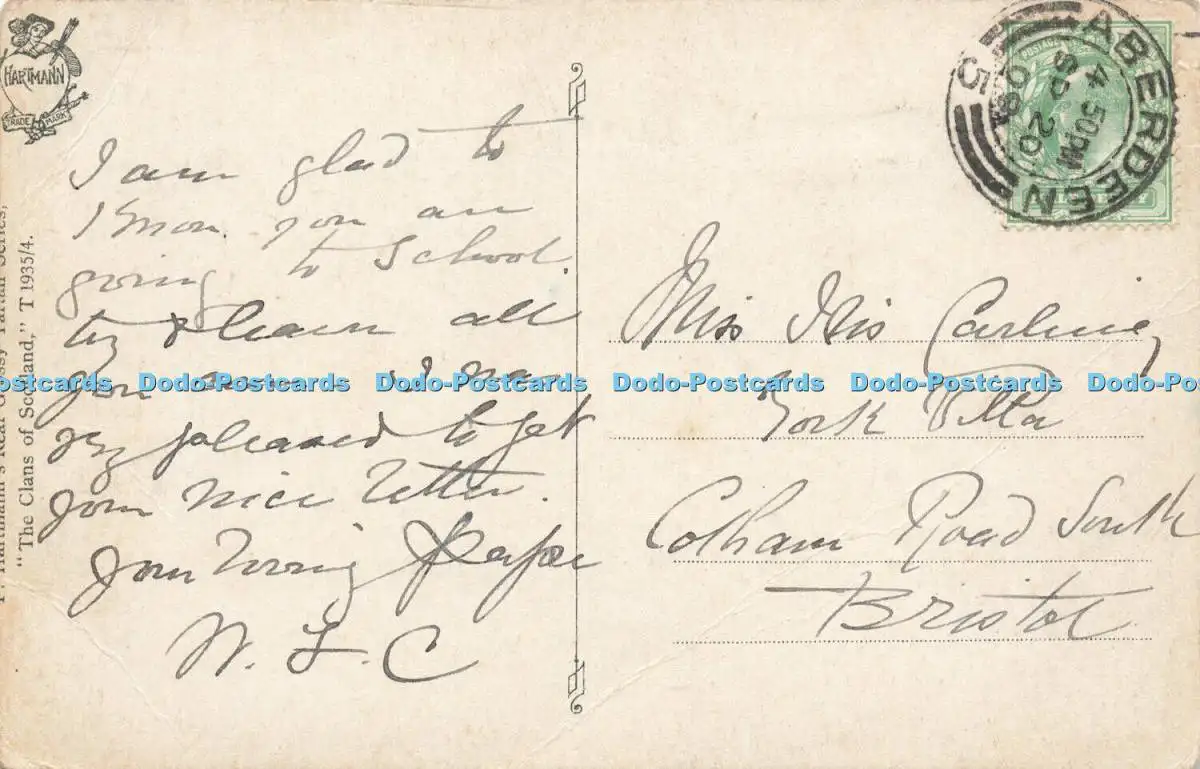 HARTMANN
TRADE MARK
"The Clans of Scotland," T 1935/4.
I am glad to
know you are
going to school.
try & learn all
you can I was
very pleased to get
your nice letter.
Your loving Papa
W. L. C
ABERDEEN
4 50PM
SP 20
08
5
Miss Isis Carline
York Villa
Cotham Road South
Bristol
Dodo-Postcards Dodo-Postcards Dodo-Postcards Dodo-Postcards Dodo-Postcards